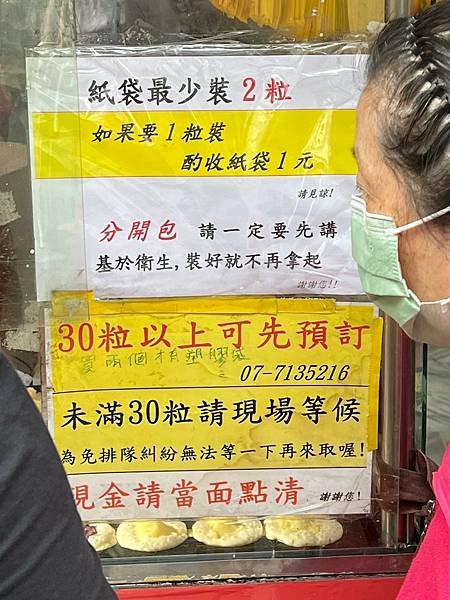 紙袋最少裝2粒
如果要1粒裝
酌收紙袋1元
請見諒!
分開包 請一定要先講
基於衛生,裝好就不再拿起
謝謝您!!
30粒以上可先預訂
買兩個才有塑膠袋
07-7135216
未滿30粒請現場等候
為免排隊糾紛無法等一下再來取喔!
現金請當面點清
謝謝您!